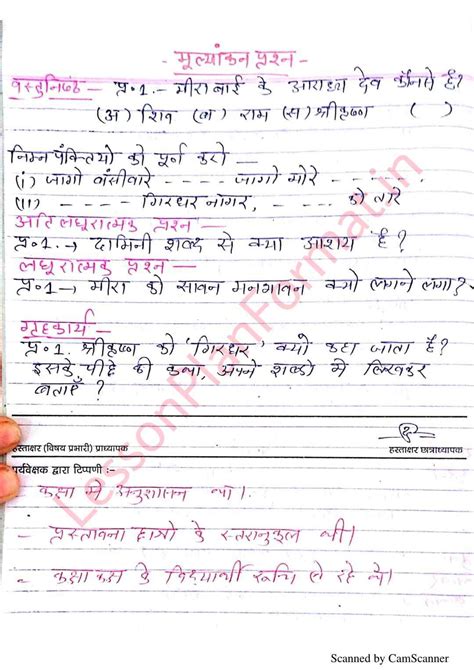 - मूल्यांकन प्रश्न -
वस्तुनिष्ठ - प्र.1.- मीरा बाई के आराध्य देव कौनसे है?
(अ) शिव (ब) राम (स) श्रीकृष्ण ( )
निम्न पंक्तियो को पूर्ण करो -
(i) जागो वंसीवारे - - - - - जागो मोरे - - - - -
(ii) - - - - - गिरधर नागर, - - - - - को तारे
अति लघूरात्मक प्रश्न -
प्र.1.→ दामिनी शब्द से क्या आशय है?
लघूरात्मक प्रश्न -
प्र.1→ मीरा को सावन मनभावन क्यो लगने लगा?
गृहकार्य -
प्र.1. श्रीकृष्ण को 'गिरधर' क्यो कहा जाता है?
इसके पीछे की कथा, अपने शब्दो मे लिखकर
बताएँ?
हस्ताक्षर (विषय प्रभारी) प्राध्यापक
हस्ताक्षर छात्राध्यापक
पर्यवेक्षक द्वारा टिप्पणी :-
- कक्षा मे अनुशासन था।
- प्रस्तावना छात्रो के स्तरानुकूल थी।
- कक्षा कक्ष के विद्यार्थी रूचि ले रहे थे।
LessonPlanFormat.in
Scanned by CamScanner